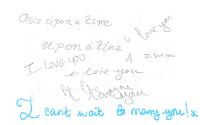 Once upon a time
I love you
upon a time
I Love you
A
I love you
I love you
I cant wait to marry you! x